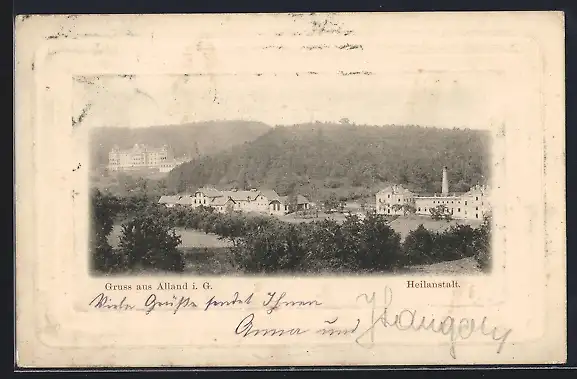 Gruss aus Alland i. G.
Heilanstalt.
Viele Grüße sendet Ihnen
Anna und